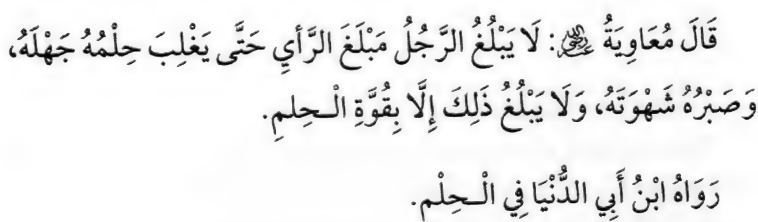 قَالَ مُعَاوِيَةُ ﵁: لَا يَبْلُغُ الرَّجُلُ مَبْلَغَ الرَّأيِ حَتَّى يَغْلِبَ حِلْمُهُ جَهْلَهُ،
وَصَبْرُهُ شَهْوَتَهُ، وَلَا يَبْلُغُ ذَلِكَ إِلَّا بِقُوَّةِ الْـحِلمِ.
رَوَاهُ ابْنُ أَبِي الدُّنْيَا فِي الْـحِلْم.